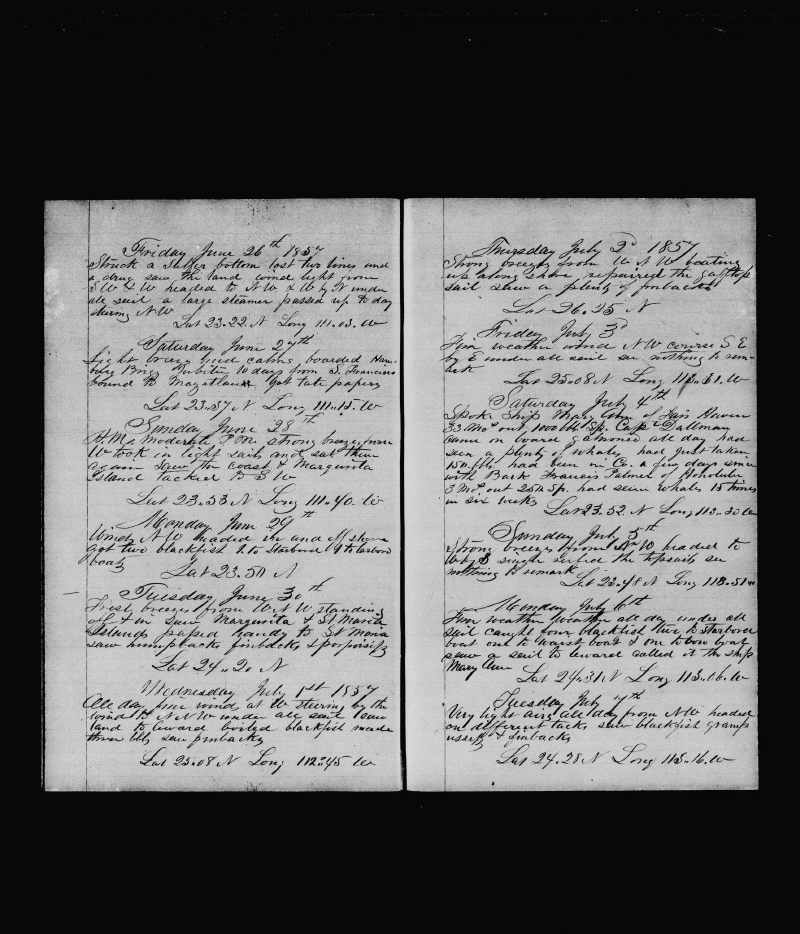 Friday June 26th 1857
Struck a Sulfer bottom lost two lines and
a drug saw the land wind light from
S W & W headed to N.W. & W by N under
all sail a large steamer passed up to day
stering N W
Lat 23..22. N Long 111..03. W
Saturday June 27th
Light breezes and calms, boarded Ham-
burg Brig 10 days from S. Francisco
bound to Mazatlan Got late papers
Lat 23..37 N Long 111..15. W
Sunday June 28th
A.M. Moderate P.M. strong breezes from
W took in light sails and set them
again Saw the coast & Margurita
Island tacked to S W
Lat 23..53 N Long 111..40. W
Monday June 29th
Winds N W headed in and off shore
got two blackfish 1 to Starbord 1 to larbord
boats
Lat 23..50 N
Tuesday June 30th
Fresh breezes from W N W standing
of & in saw Margurita & St Maria
Islands passed handy to St Maria
saw humpbacks finbacks & porpoises
Lat 24..20 N
Wednesday July 1st 1857
All day fine wind at W stering by the
wind to N N W under all sail saw
land to leward boiled blackfish made
three bbls saw finbacks
Lat 25..08 N Long 112..45 W
Thursday July 2d 1857
Strong breezes from W N W beating
up along shore repairred the gafftop
sail saw a plenty of finbacks
Lat 26..25 N
Friday July 3d
Fine weather wind N W course S E
by E under all sail see nothing to rem-
ark
Lat 25..08 N Long 113..31. W
Saturday July 4th
Spoke Ship Mary Ann of Fair Haven
33 Mos out, 1000 bbls Sp. Capt Dallman
came on board gamoned all day had
seen a plenty of whales had just taken
150 bbls, had been in Co. a few days since
with Bark Francis Palmer of Honolulu
3 Mos. out 25 bb Sp. had seen whales 15 times
in six weeks
Lat 23..52. N Long 113..30 W
Sunday July 5th
Strong breezes from N W headed to
W by S single reefed the topsails see
nothing to remark
Lat 23..48 N Long 113..51 W
Monday July 6th
Fine weather weather all day under all
sail caught four blackfish two to Starbord
boat one to waist boat & one to bow boat
saw a sail to leward called it the ship
Mary Ann
Lat 24..31 N Long 113..06. W
Tuesday July 7th
Very light airs all day from N W headed
on different tacks saw blackfish gramp
usses & finbacks
Lat 24..28 N Long 113..16. W